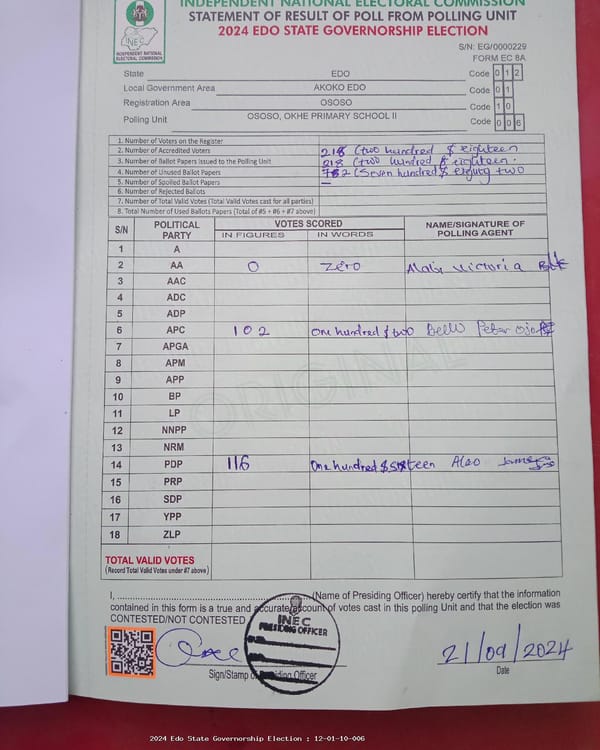 INDEPENDENT NATIONAL ELECTORAL COMMISSION
STATEMENT OF RESULT OF POLL FROM POLLING UNIT
2024 EDO STATE GOVERNORSHIP ELECTION
INEC
INDEPENDENT NATIONAL ELECTORAL COMMISSION
S/N: EG/0000229
FORM EC 8A
State EDO Code 0 1 2
Local Government Area AKOKO EDO Code 0 1
Registration Area OSOSO Code 1 0
Polling Unit OSOSO, OKHE PRIMARY SCHOOL II Code 0 0 6
1. Number of Voters on the Register
2. Number of Accredited Voters 218 (two hundred & eighteen
3. Number of Ballot Papers Issued to the Polling Unit 218 (two hundred & eighteen.
4. Number of Unused Ballot Papers 782 (Seven hundred & eighty two
5. Number of Spoiled Ballot Papers —
6. Number of Rejected Ballots
7. Number of Total Valid Votes (Total Valid Votes cast for all parties)
8. Total Number of Used Ballots Papers (Total of #5 + #6 + #7 above)
S/N POLITICAL PARTY VOTES SCORED NAME/SIGNATURE OF POLLING AGENT
IN FIGURES IN WORDS
1 A
2 AA 0 Zero Victoria
3 AAC
4 ADC
5 ADP
6 APC 102 One hundred & two Bello Peter
7 APGA
8 APM
9 APP
10 BP
11 LP
12 NNPP
13 NRM
14 PDP 116 One hundred & sixteen James
15 PRP
16 SDP
17 YPP
18 ZLP
ORIGINAL
TOTAL VALID VOTES
(Record Total Valid Votes under #7 above)
I, ........ (Name of Presiding Officer) hereby certify that the information
contained in this form is a true and accurate account of votes cast in this polling Unit and that the election was
CONTESTED/NOT CONTESTED
INEC
PRESIDING OFFICER
21/09/2024
Sign/Stamp of Presiding Officer Date
2024 Edo State Governorship Election : 12-01-10-006